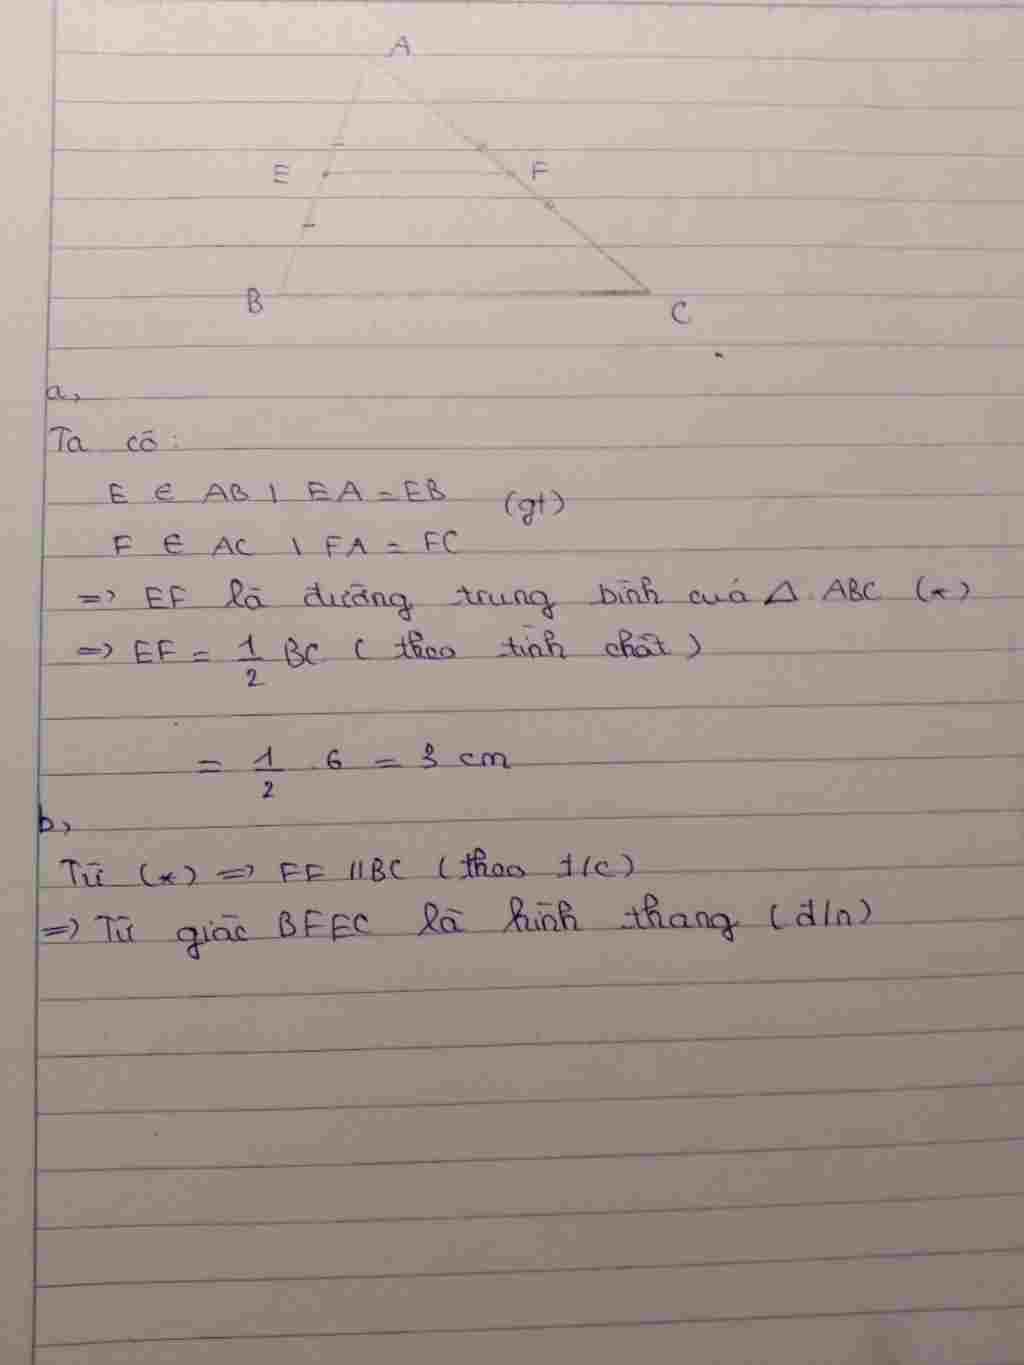 A
E
F
B
C
a,
Ta có:
E ∈ AB, EA = EB
(gt)
F ∈ AC, FA = FC
=> EF là đường trung bình của Δ ABC (*)
=> EF = 1/2 BC (theo tính chất)
= 1/2 . 6 = 3 cm
b,
Từ (*) => EF // BC (theo t/c)
=> Tứ giác BFEC là hình thang (đ/n)